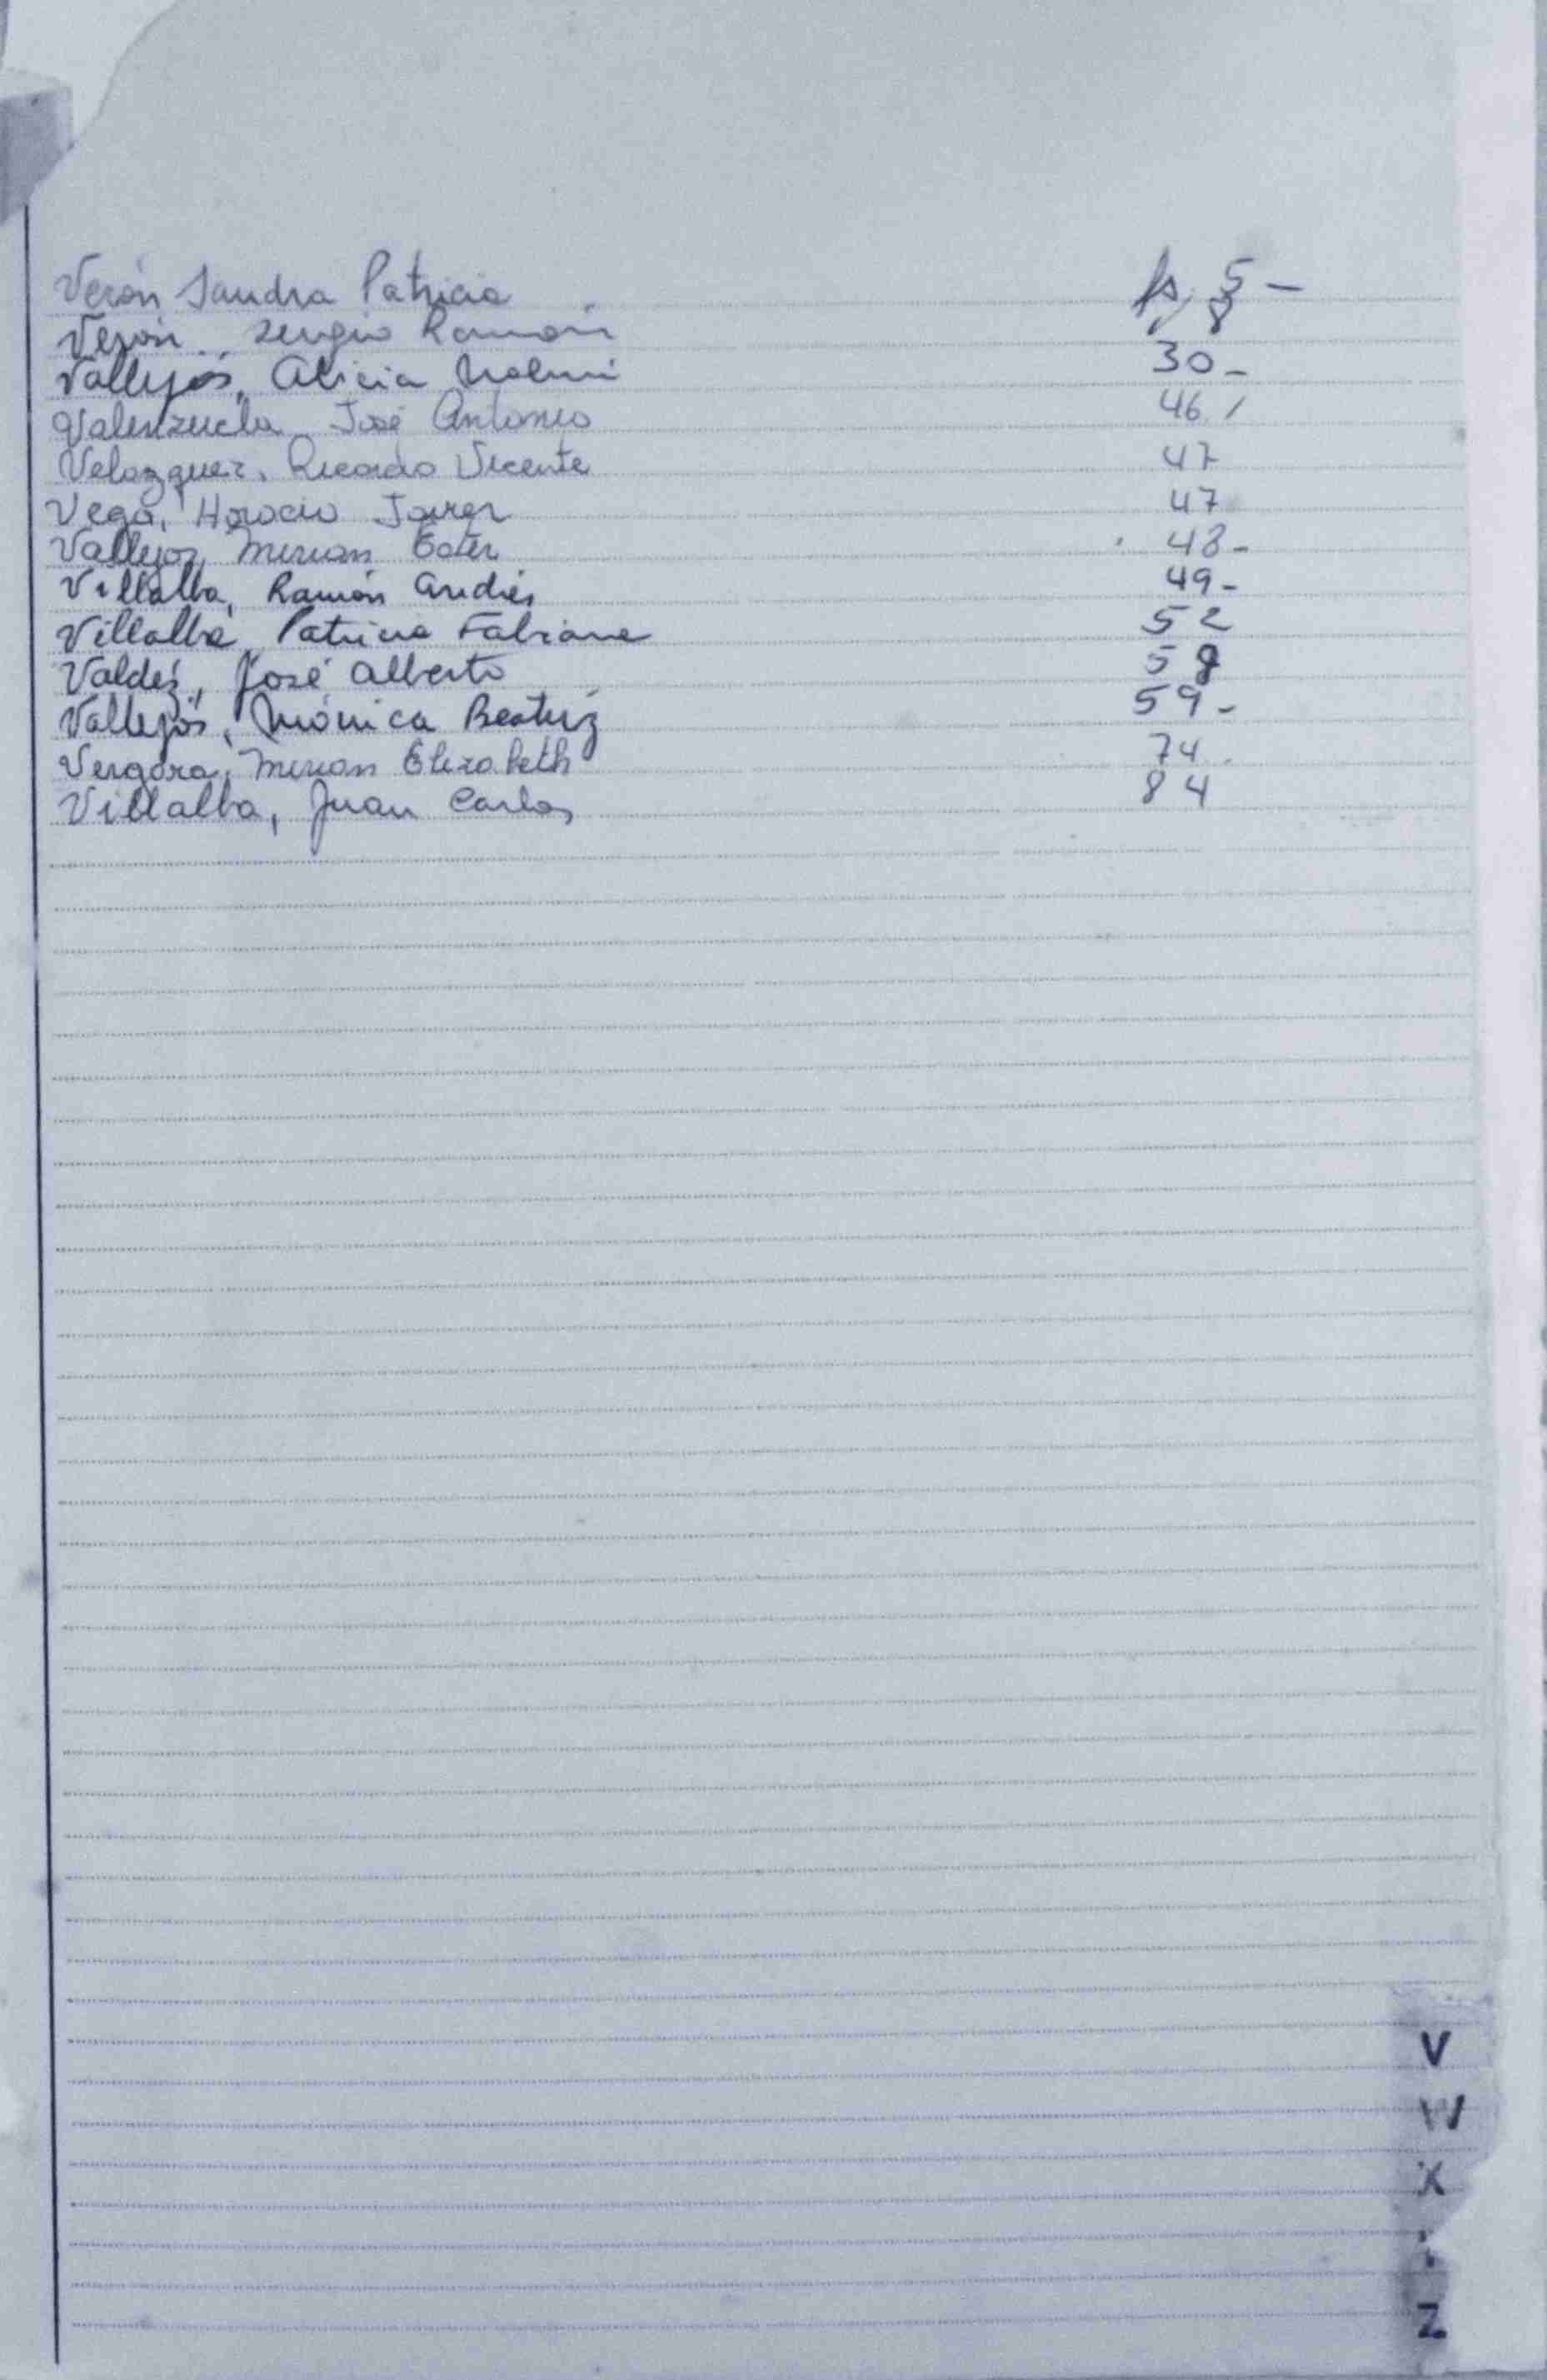 Verón Sandra Patricia fs, 5 -
Verón, Sergio Ramón 8
Vallejos, Alicia Noemi 30 -
Valenzuela José Antonio 46 /
Velazquez, Ricardo Vicente 47
Vega, Horacio Javier 47
Vallejos, Mirian Ester 48 -
Villalba, Ramón Andrés 49 -
Villalba, Patricia Fabiana 52
Valdéz, José Alberto 58
Vallejos, Mónica Beatriz 59 -
Vergara, Mirian Elizabeth 74
Villalba, Juan Carlos 84
V
W
X
Z